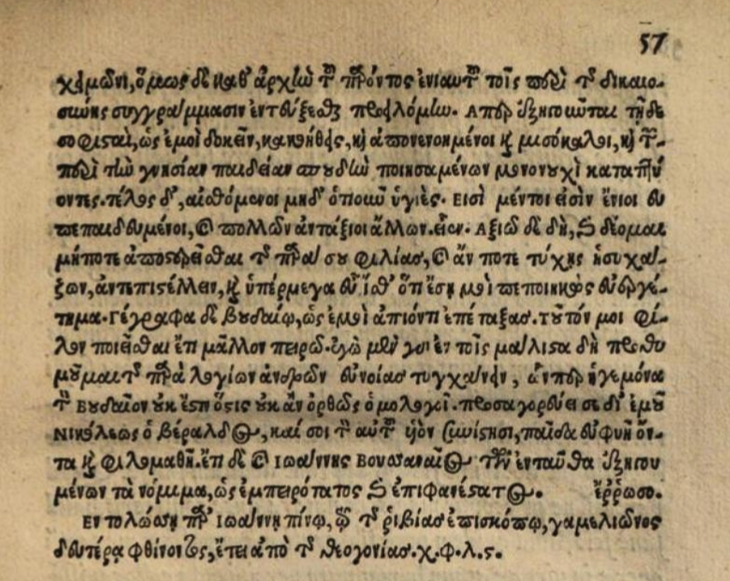 57
χειμῶνι, ὅμως δὲ καθ' ἀρχὴν τοῦ παρόντος ἐνιαυτοῦ τοῖς περὶ τῆς δικαιο-
σύνης συγγράμμασιν ἐντεύξεσθαι προελόμην. Απερ ἐξηγοιῶται τῇδε
σοφισταὶ, ὡς ἐμοὶ δοκεῖν, κακοήθεις, καὶ ἀπονενοημένοι καὶ μισόκαλοι, καὶ τῶν
περὶ τὴν γνησίαν παιδείαν σπουδὴν ποιησαμένων μονονουχὶ καταπτύ
οντες. τέλος δ', αἰσθόμενοι μηδ' ὁποιοῦν ὑγιές. Εισὶ μέντοι εἰσὶν ἔνιοι εὐ
πεπαιδευμένοι, καὶ πολλῶν ἀντάξιοι ἄλλων. εἶεν. Αξιῶ δὲ δὴ, καὶ δέομαι
μήποτε ἀποστερεῖσθαι τῆς παρὰ σου φιλίας, καὶ ἄν ποτε τύχῃς ἡσυχά-
ζων, ἀντεπιστέλλειν, καὶ ὑπέρμεγα εὖ ἴσθ' ὅτι ἔσῃ μοι πεποιηκὼς εὐεργέ-
τημα. Γέγραφα δὲ Βουδαίῳ, ὡς ἐμοὶ ἀπιόντι ἐπέταξας. τοῦτόν μοι φί-
λον ποιεῖσθαι ἔτι μᾶλλον πειρῶ. ἐγὼ μὲν γὰρ ἐν τοῖς μάλιστα δὴ προθυ
μοῦμαι τῆς παρὰ λογίων ἀνδρῶν εὐνοίας τυγχάνειν, ὧνπερ ἡγεμόνα
τὸν Βουδαῖον οὐκ ἔστιν ὅστις οὐκ ἂν ὀρθῶς ὁμολογοῖ. προσαγορεύει σε δι' ἐμοῦ
Νικόλεως ὁ Βέραλδος, καί σοι τὸν αὐτοῦ υἱὸν συνίστησι, παῖδα εὐφυῆ ὄν-
τα καὶ φιλομαθῆ. ἔτι δὲ καὶ Ιωάννης Βουσαναῖος τῶν ἐνταῦθα ἐξηγου
μένων τὰ νόμιμα, ὡς ἐμπειρότατος καὶ ἐπιφανέστατος. ἔῤῥωσο.
Εν τολώσῃ παρ' Ιωάννῃ πίνῳ, τῷ τῆς ῥιβίας ἐπισκόπῳ, γαμελιῶνος
δευτέρᾳ φθίνοντος, ἔτει ἀπὸ τῆς θεογονίας. χ. φ. λ. ς.